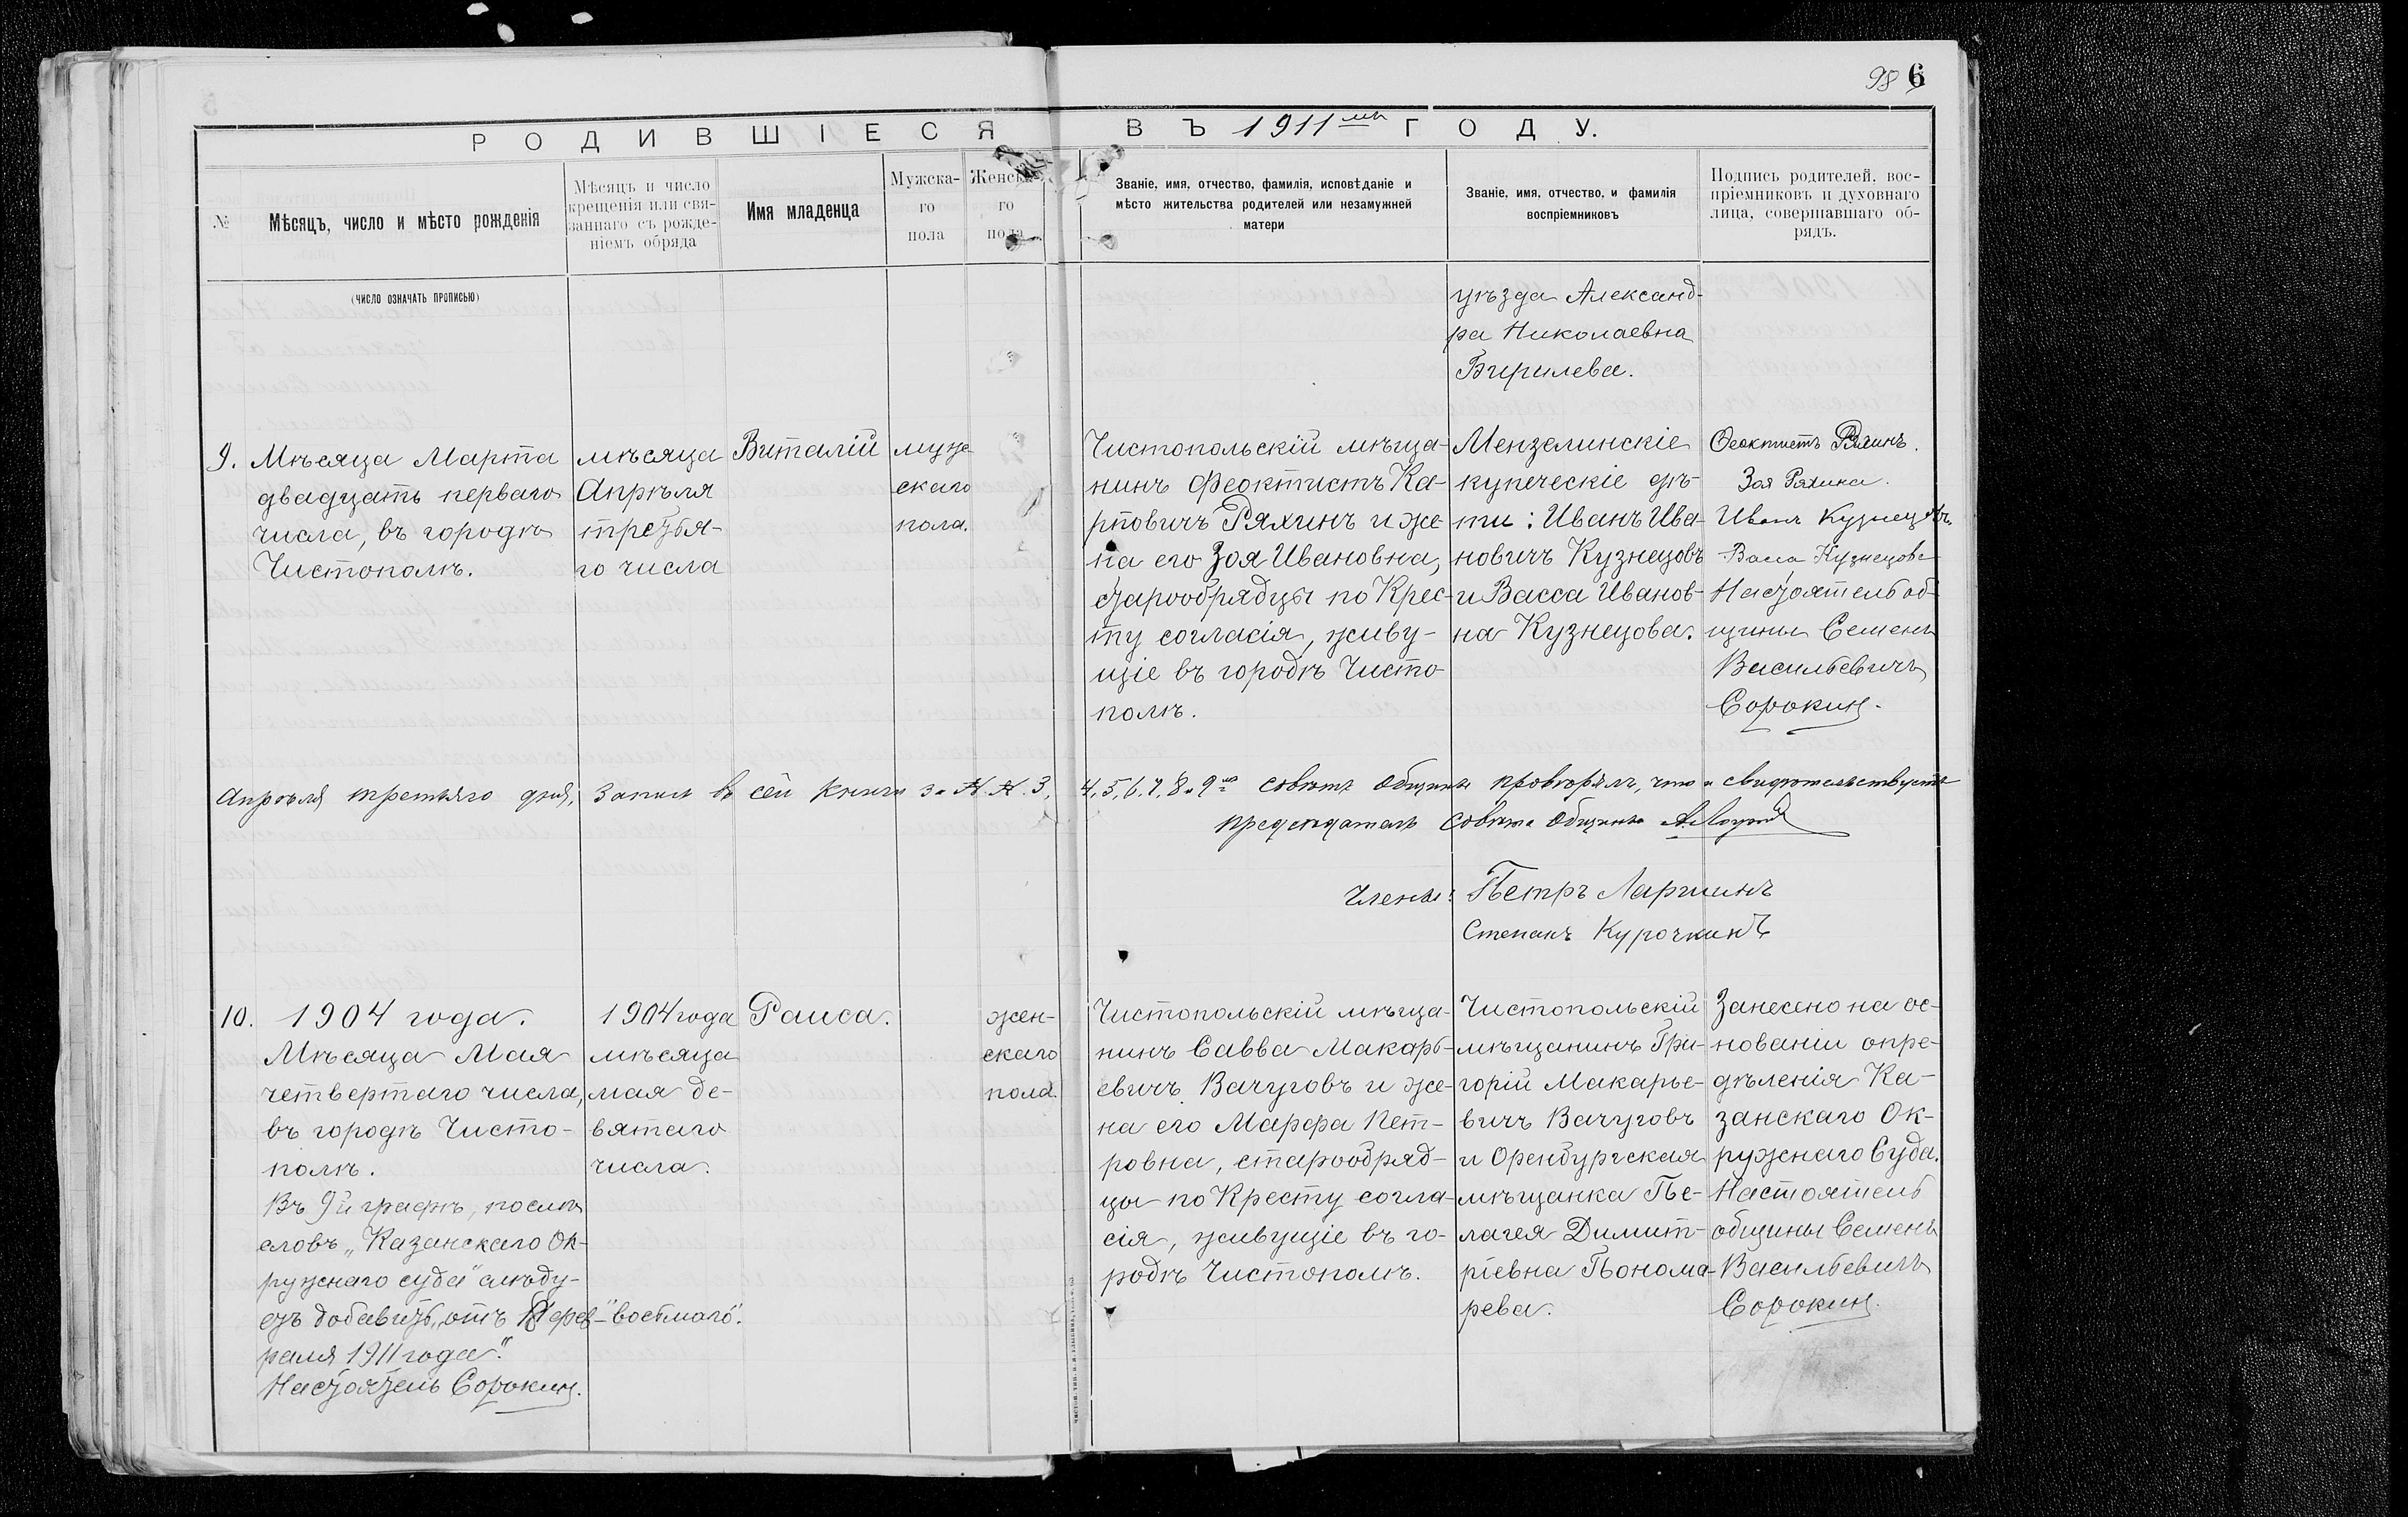 98 6
РОДИВШІЕСЯ ВЪ 1911мъ ГОДУ.
№
Мѣсяцъ, число и мѣсто рожденія
(ЧИСЛО ОЗНАЧАТЬ ПРОПИСЬЮ)
Мѣсяцъ и число
крещенія или свя-
заннаго съ рожде-
ніемъ обряда
Имя младенца
Мужска-
го
пола
Женска-
го
пола
Званіе, имя, отчество, фамилія, исповѣданіе и
мѣсто жительства родителей или незамужней
матери
Званіе, имя, отчество, и фамилія
воспріемниковъ
Подпись родителей, вос-
пріемниковъ и духовнаго
лица, совершавшаго об-
рядъ.
уѣзда Александ-
ра Николаевна
Бирилева.
9.
Мѣсяца Марта
двадцать перваго
числа, въ городѣ
Чистополѣ.
мѣсяца
Апрѣля
третья-
го числа
Виталій
муж
скаго
пола.
Чистопольскій мѣща-
нинъ Феоктистъ Ка-
рповичъ Ряхинъ и же-
на его Зоя Ивановна,
старообрядцы по Крес-
ту согласія, живу-
щіе въ городѣ Чисто
полѣ.
Мензелинскіе
купеческіе дѣ-
ти: Иванъ Ива-
новичъ Кузнецовъ
и Васса Иванов-
на Кузнецова.
Ѳеоктистъ Ряхинъ.
Зоя Ряхина.
Иванъ Кузнецовъ
Васса Кузнецова
Настоятель об-
щины Семенъ
Васильевичъ
Сорокин.
Апрѣля третьяго дня, запись въ сей книги за №№ 3, 4, 5, 6, 7, 8 и 9й совѣтъ общины провѣрилъ, что и свидѣтельствуетъ
предсѣдатель совѣта общины
Члены: Петръ Ларшинъ
Степанъ Курочкинъ
10.
1904 года.
Мѣсяца Мая
четвертаго числа,
въ городѣ Чисто-
полѣ.
Въ 9й графѣ, послѣ
словъ „Казанскаго Ок-
ружнаго суда" слѣду-
етъ добавить, отъ 8 фев-"восьмаго".
раля 1911 года".
Настоятель Сорокин.
1904 года
мѣсяца
мая де-
вятаго
числа.
Раиса.
жен-
скаго
пола.
Чистопольскій мѣща-
нинъ Савва Макарь-
евичъ Вачуговъ и же-
на его Марфа Пет-
ровна, старообряд-
цы по Кресту согла-
сія, живущіе въ го-
родѣ Чистополѣ.
Чистопольскій
мѣщанинъ Гри-
горій Макарье-
вичъ Вачуговъ
и Оренбургская
мѣщанка Пе-
лагея Димит-
ріевна Понома-
рева.
Занесено на ос-
нованіи опре-
дѣленія Ка-
занскаго Ок-
ружнаго Суда.
Настоятель
общины Семенъ
Васильевичъ
Сорокин.